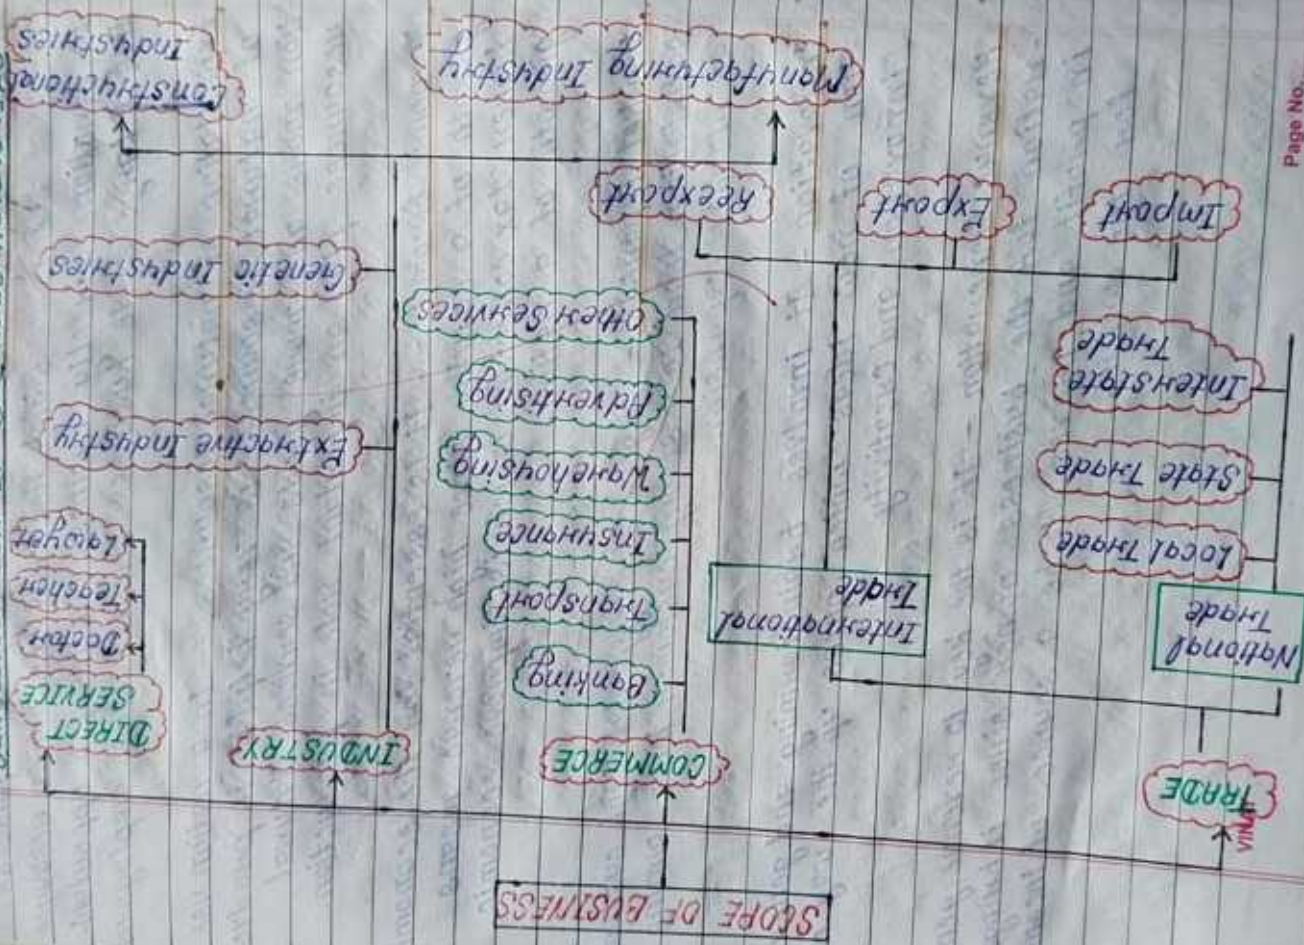 SCOPE OF BUSINESS
TRADE
COMMERCE
INDUSTRY
DIRECT
SERVICE
National
Trade
Local Trade
State Trade
Interstate
Trade
International
Trade
Import
Export
Reexport
Banking
Transport
Insurance
Warehousing
Advertising
Other Services
Extractive Industry
Genetic Industries
Manufacturing Industry
Constructional
Industries
Doctor
Teacher
Lawyer
Page No.